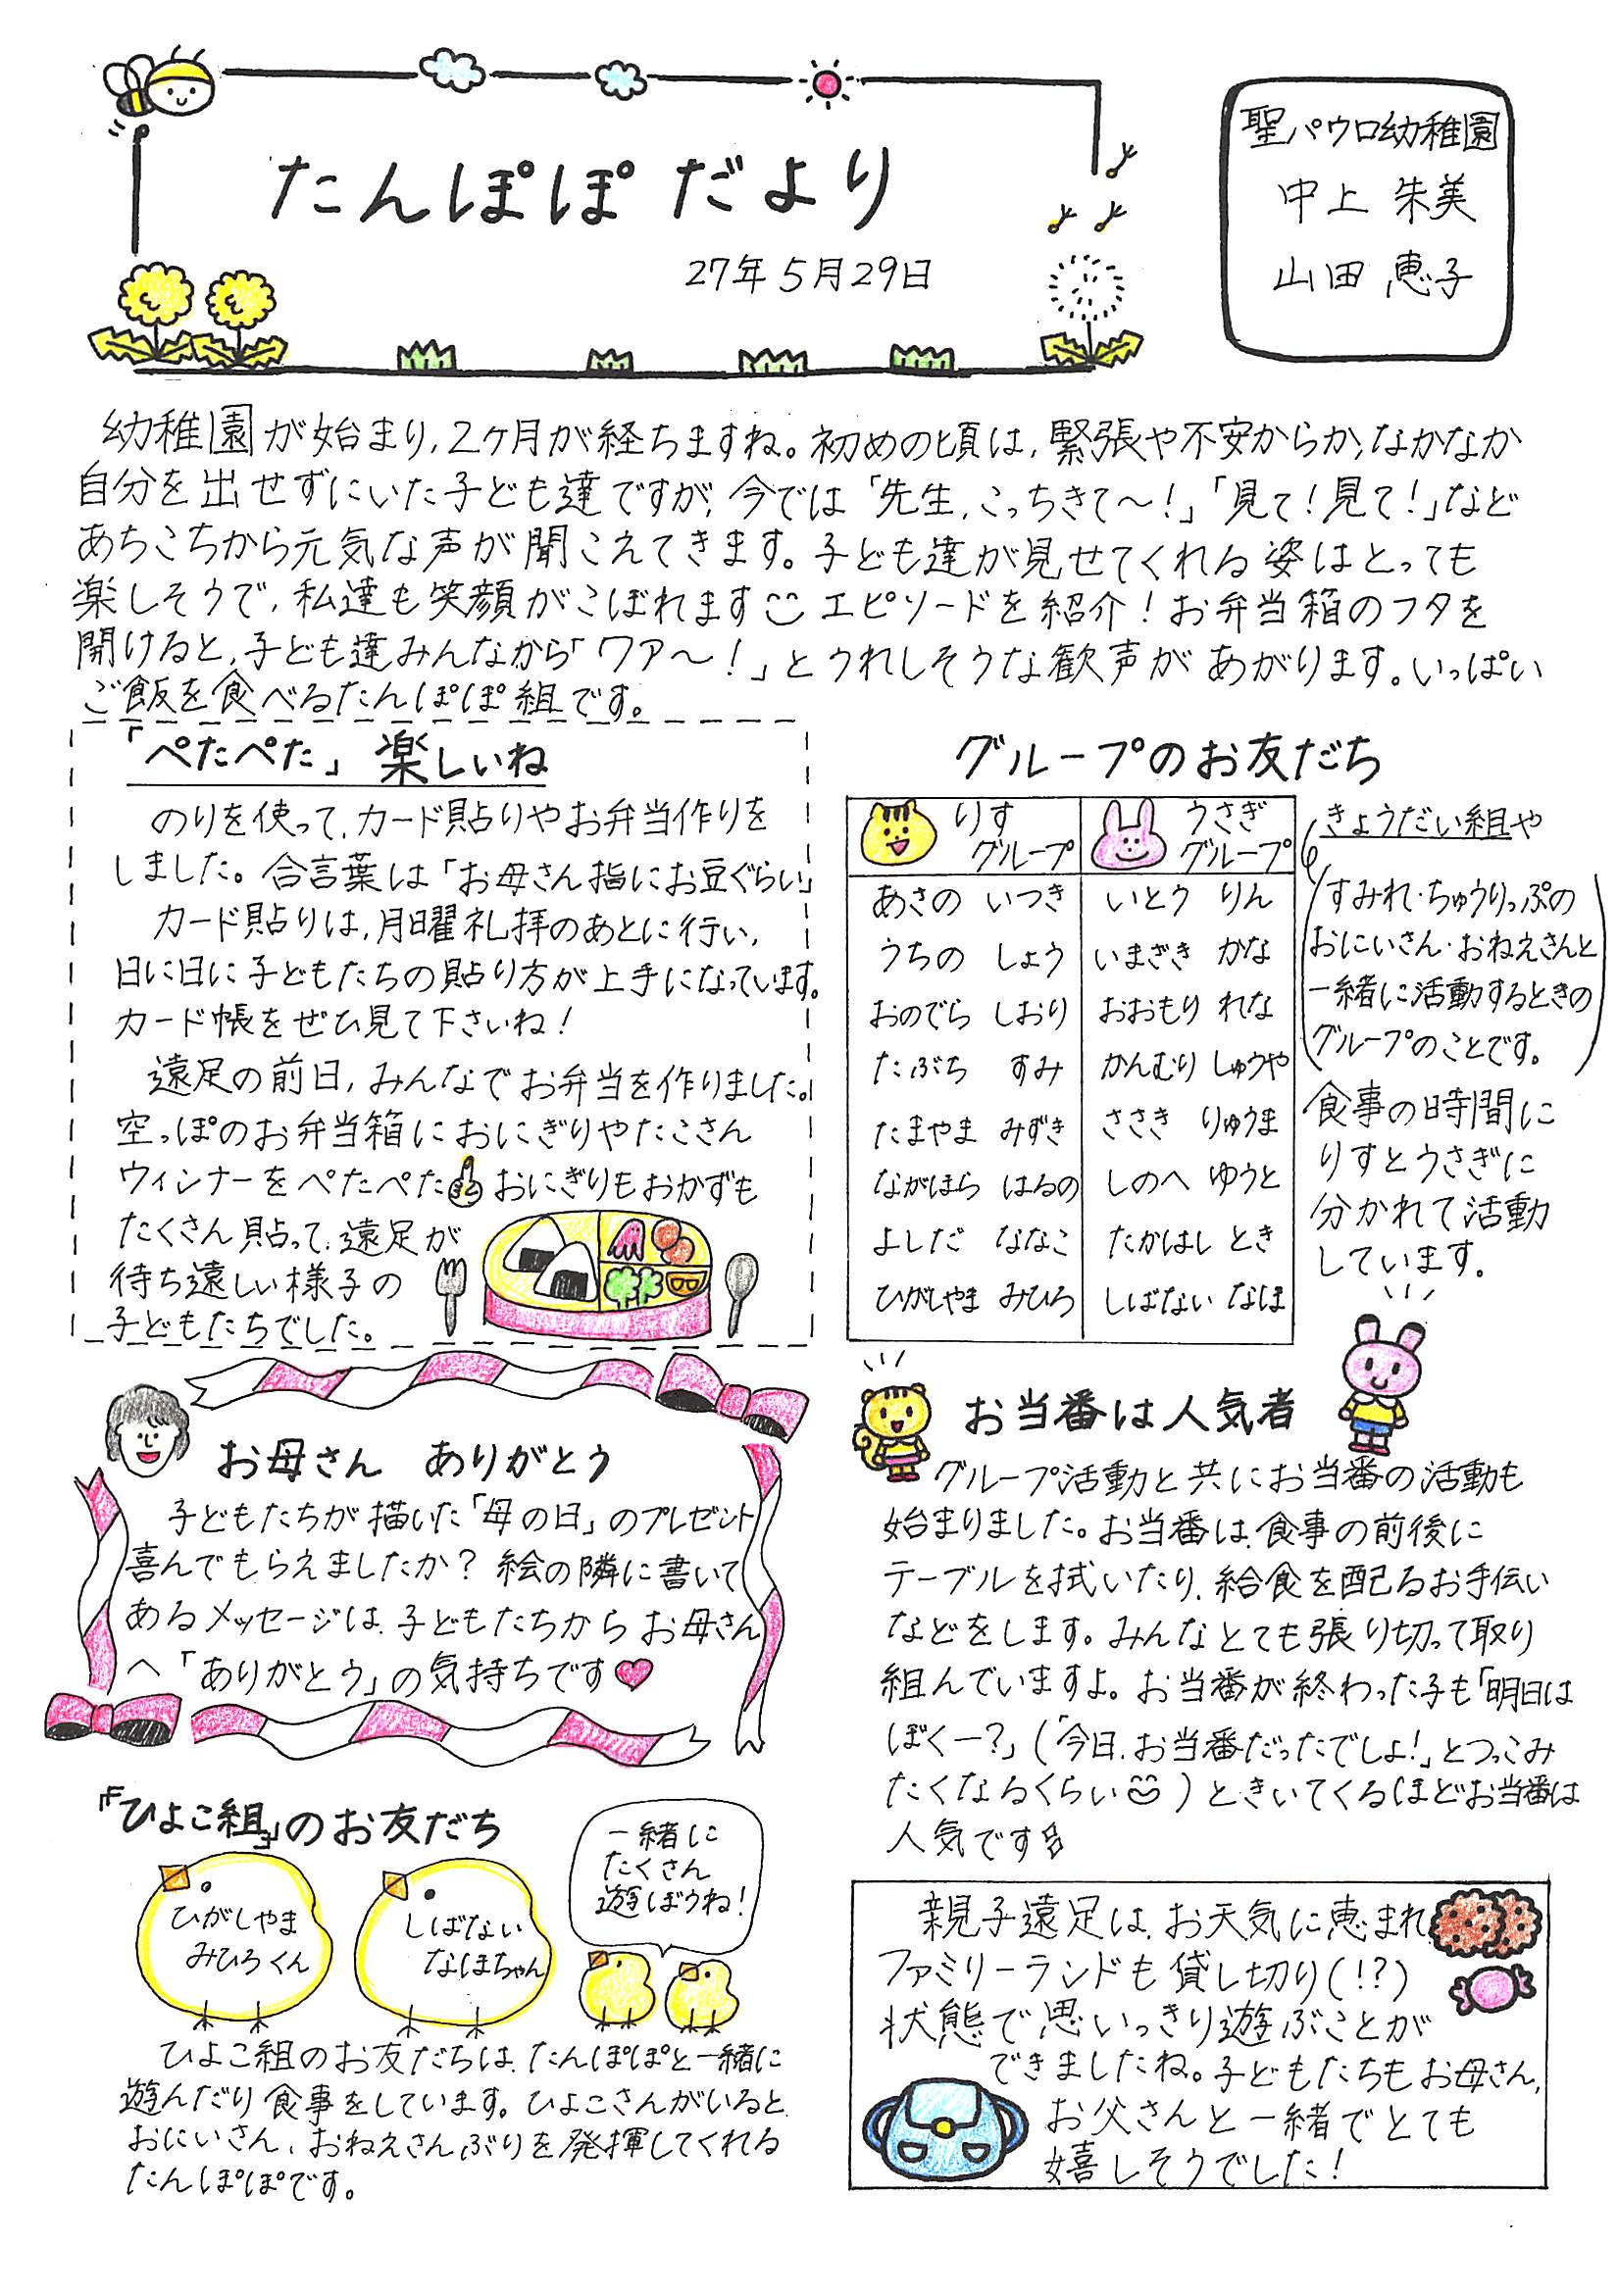 たんぽぽ だより
27年5月29日
聖パウロ幼稚園
中上 朱美
山田 恵子
幼稚園が始まり、2ヶ月が経ちますね。初めの頃は、緊張や不安からか、なかなか
自分を出せずにいた子ども達ですが、今では「先生、こっちきて〜!」「見て!見て!」など
あちこちから元気な声が聞こえてきます。子ども達が見せてくれる姿はとっても
楽しそうで、私達も笑顔がこぼれます エピソードを紹介!お弁当箱のフタを
開けると、子ども達みんなから「ワァ〜!」とうれしそうな歓声があがります。いっぱい
ご飯を食べるたんぽぽ組です。
「ぺたぺた」楽しいね
のりを使って、カード貼りやお弁当作りを
しました。合言葉は「お母さん指にお豆ぐらい」
カード貼りは、月曜礼拝のあとに行い、
日に日に子どもたちの貼り方が上手になっています。
カード帳をぜひ見て下さいね!
遠足の前日、みんなでお弁当を作りました。
空っぽのお弁当箱におにぎりやたこさん
ウィンナーをぺたぺた おにぎりもおかずも
たくさん貼って、遠足が
待ち遠しい様子の
子どもたちでした。
グループのお友だち
りす グループ うさぎ グループ
あさの いつき いとう りん
うちの しょう いまざき かな
おのでら しおり おおもり れな
たぶち すみ かんむり しゅうや
たまやま みずき ささき りゅうま
ながほら はるの しのへ ゆうと
よしだ ななこ たかはし とき
ひがしやま みひろ しばない なほ
きょうだい組や
(すみれ・ちゅうりっぷの
おにいさん・おねえさんと
一緒に活動するときの
グループのことです。)
食事の時間に
りすとうさぎに
分かれて活動
しています。
お母さん ありがとう
子どもたちが描いた「母の日」のプレゼント
喜んでもらえましたか? 絵の隣に書いて
あるメッセージは、子どもたちから お母さん
へ「ありがとう」の気持ちです♥
お当番は人気者
グループ活動と共にお当番の活動も
始まりました。お当番は、食事の前後に
テーブルを拭いたり、給食を配るお手伝い
などをします。みんなとても張り切って取り
組んでいますよ。お当番が終わった子も「明日は
ぼくー?」(「今日、お当番だったでしょ!」とつっこみ
たくなるくらい )ときいてくるほどお当番は
人気です
「ひよこ組」のお友だち
ひがしやま
みひろくん
しばない
なほちゃん
一緒に
たくさん
遊ぼうね!
ひよこ組のお友だちは、たんぽぽと一緒に
遊んだり食事をしています。ひよこさんがいると、
おにいさん、おねえさんぶりを発揮してくれる
たんぽぽです。
親子遠足は、お天気に恵まれ、
ファミリーランドも貸し切り(!?)
状態で思いっきり遊ぶことが
できましたね。子どもたちもお母さん、
お父さんと一緒でとても
嬉しそうでした!